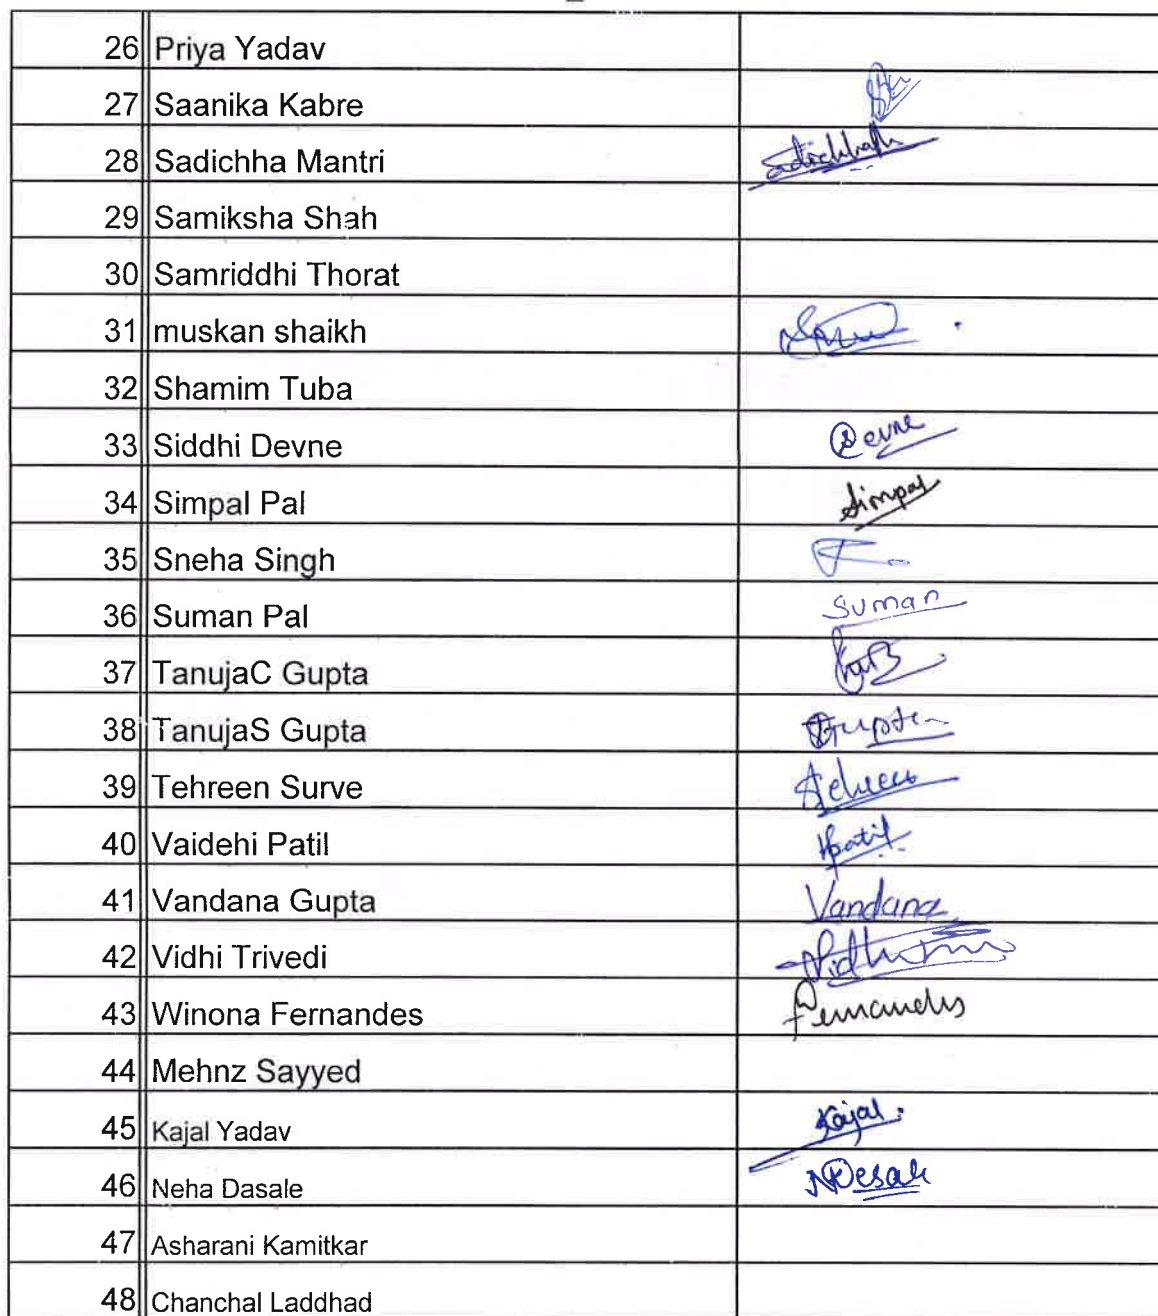 26 Priya Yadav
27 Saanika Kabre
28 Sadichha Mantri Sadichhah
29 Samiksha Shah
30 Samriddhi Thorat
31 muskan shaikh
32 Shamim Tuba
33 Siddhi Devne Devne
34 Simpal Pal Simpal
35 Sneha Singh
36 Suman Pal Suman
37 TanujaC Gupta
38 TanujaS Gupta Gupta
39 Tehreen Surve Tehreen
40 Vaidehi Patil Patil
41 Vandana Gupta Vandana
42 Vidhi Trivedi
43 Winona Fernandes Fernandes
44 Mehnz Sayyed
45 Kajal Yadav Kajal.
46 Neha Dasale
47 Asharani Kamitkar
48 Chanchal Laddhad